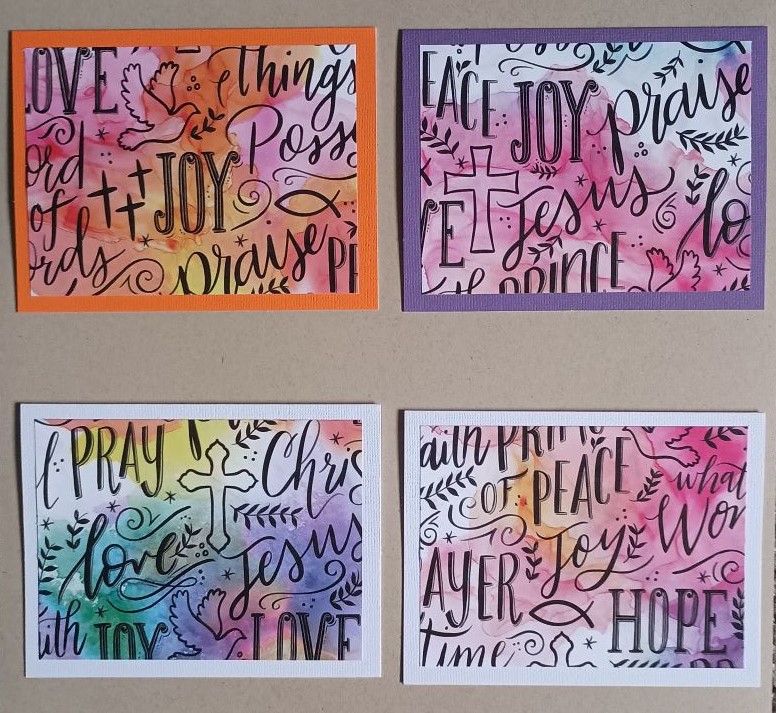 LOVE things
Poss
ord
of JOY
ords praise PE
EACE JOY praise
VE Jesus lo
PRINCE
PRAY Chris
love Jesus
ith JOY LOVE
aith PRINC
OF PEACE what
Joy Wor
AYER HOPE
time